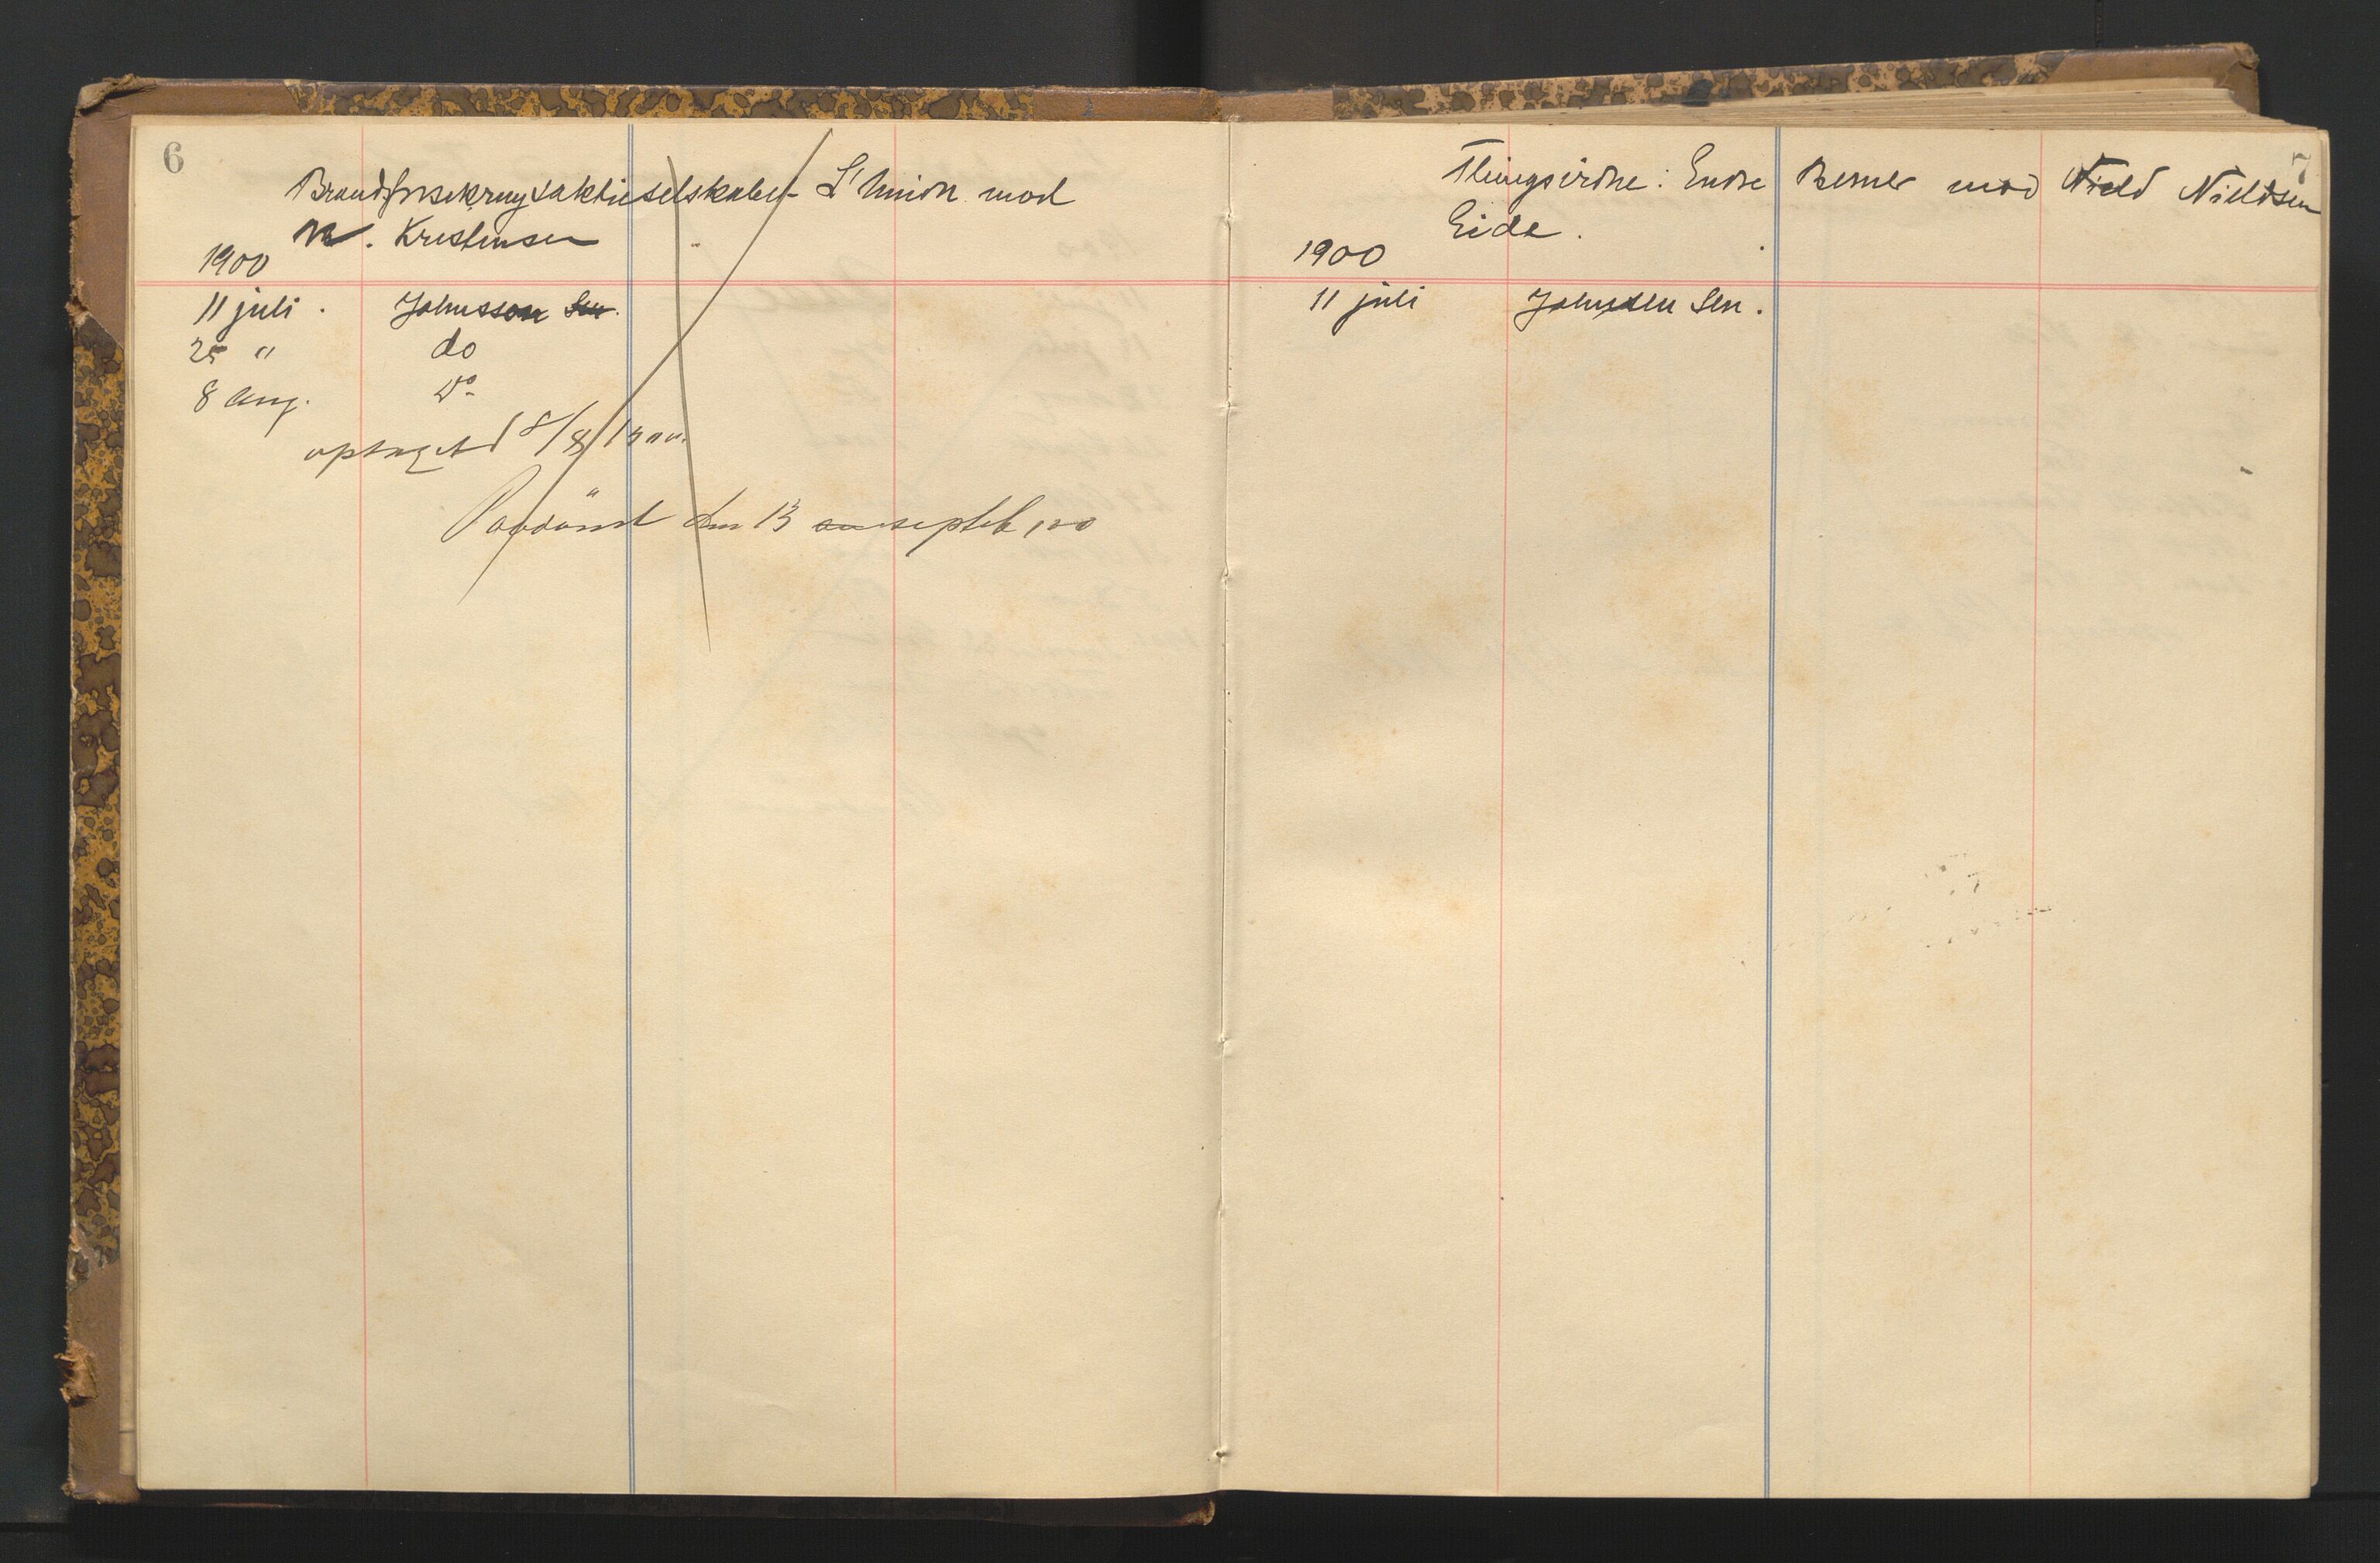 6
Brandforsikringsaktieselskabet L'Union mod
N. Kristensen
1900
11 juli . Johnsson Sen.
25 " do
8 aug. Do
optaget 8/8 1900.
Paadömt den 13 septeb 1900
7
Thingsvidne: Endre Berner mod Nield Nieldsen
Eide .
1900
11 juli Johnsen Sen.